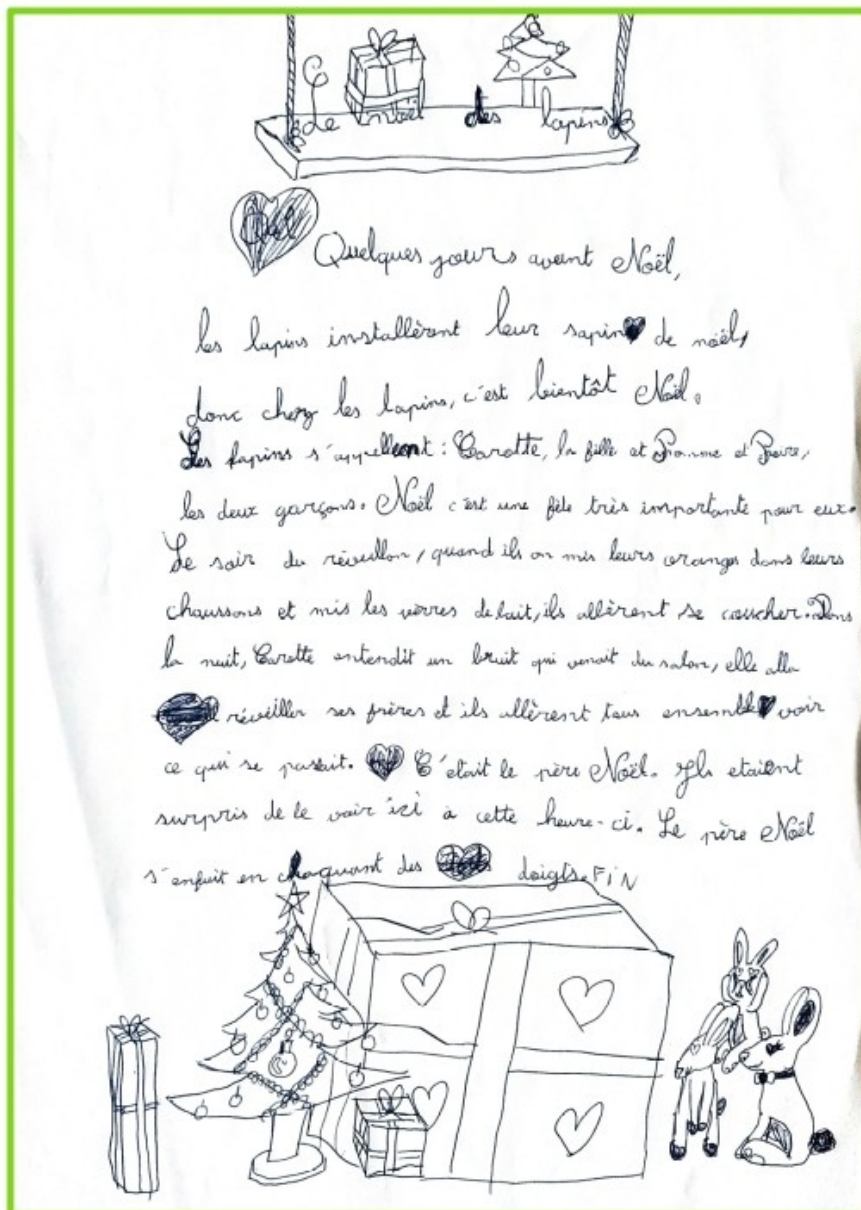 Le noël des lapins
Quelques jours avant Noël,
les lapins installèrent leur sapin de noël,
donc chez les lapins, c'est bientôt Noël.
Les lapins s'appellent : Carotte, la fille et Pomme et Poire,
les deux garçons. Noël c'est une fête très importante pour eux.
Le soir du réveillon, quand ils on mis leurs oranges dans leurs
chaussons et mis les verres de lait, ils allèrent se coucher. Dans
la nuit, Carotte entendit un bruit qui venait du salon, elle alla
réveiller ses frères et ils allèrent tous ensemble voir
ce qui se passait. C'était le père Noël. Ils etaient
surpris de le voir ici à cette heure-ci. Le père Noël
s'enfuit en claquant des doigts. FIN